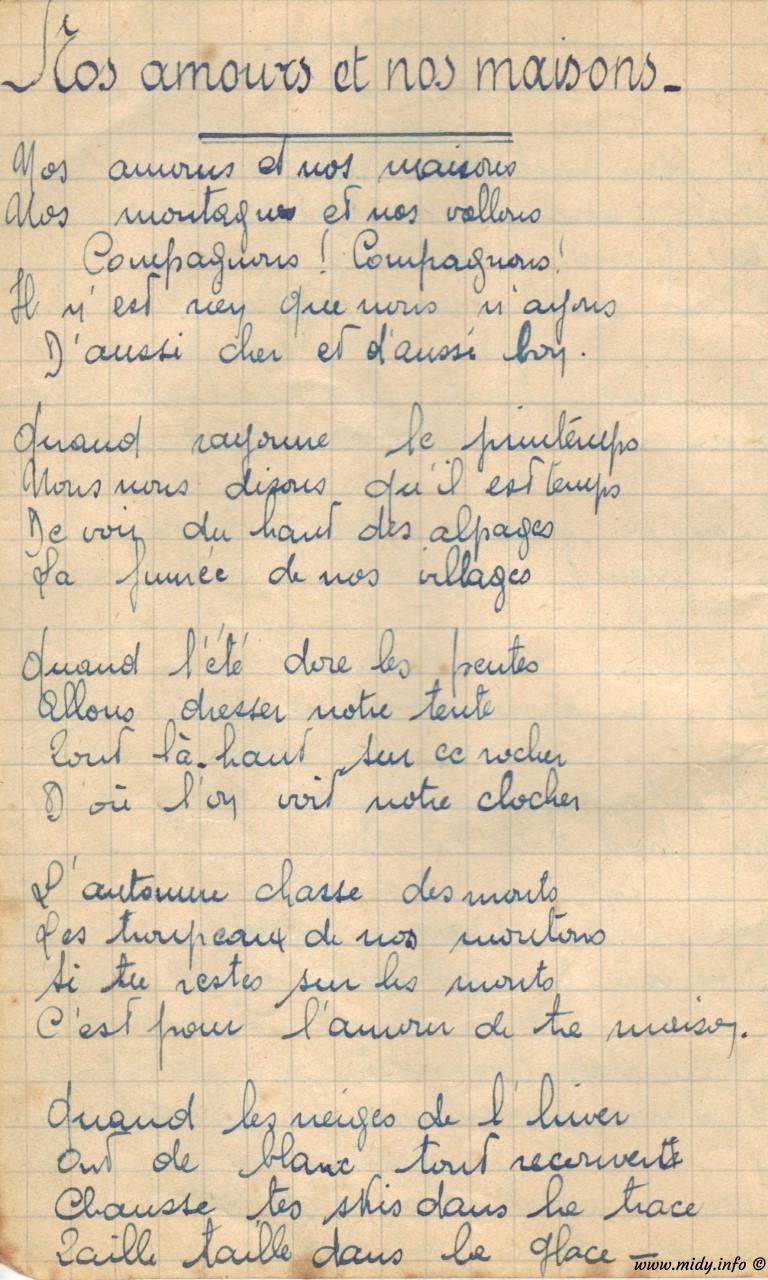 Nos amours et nos maisons_
Nos amours et nos maisons
Nos montagnes et nos vallons
Compagnons ! Compagnons !
Il n'est rien que nous n'ayons
D'aussi cher et d'aussi bon.
Quand rayonne le printemps
Nous nous disons qu'il est temps
De voir du haut des alpages
La fumée de nos villages
Quand l'été dore les pentes
Allons dresser notre tente
Tout là-haut sur ce rocher
D'où l'on voit notre clocher
L'automne chasse des monts
Les troupeaux de nos moutons
Si tu restes sur les monts
C'est pour l'amour de ta maison.
Quand les neiges de l'hiver
Ont de blanc tout recouvert
Chausse tes skis dans la trace
Taille taille dans la glace _
www.midy.info ©